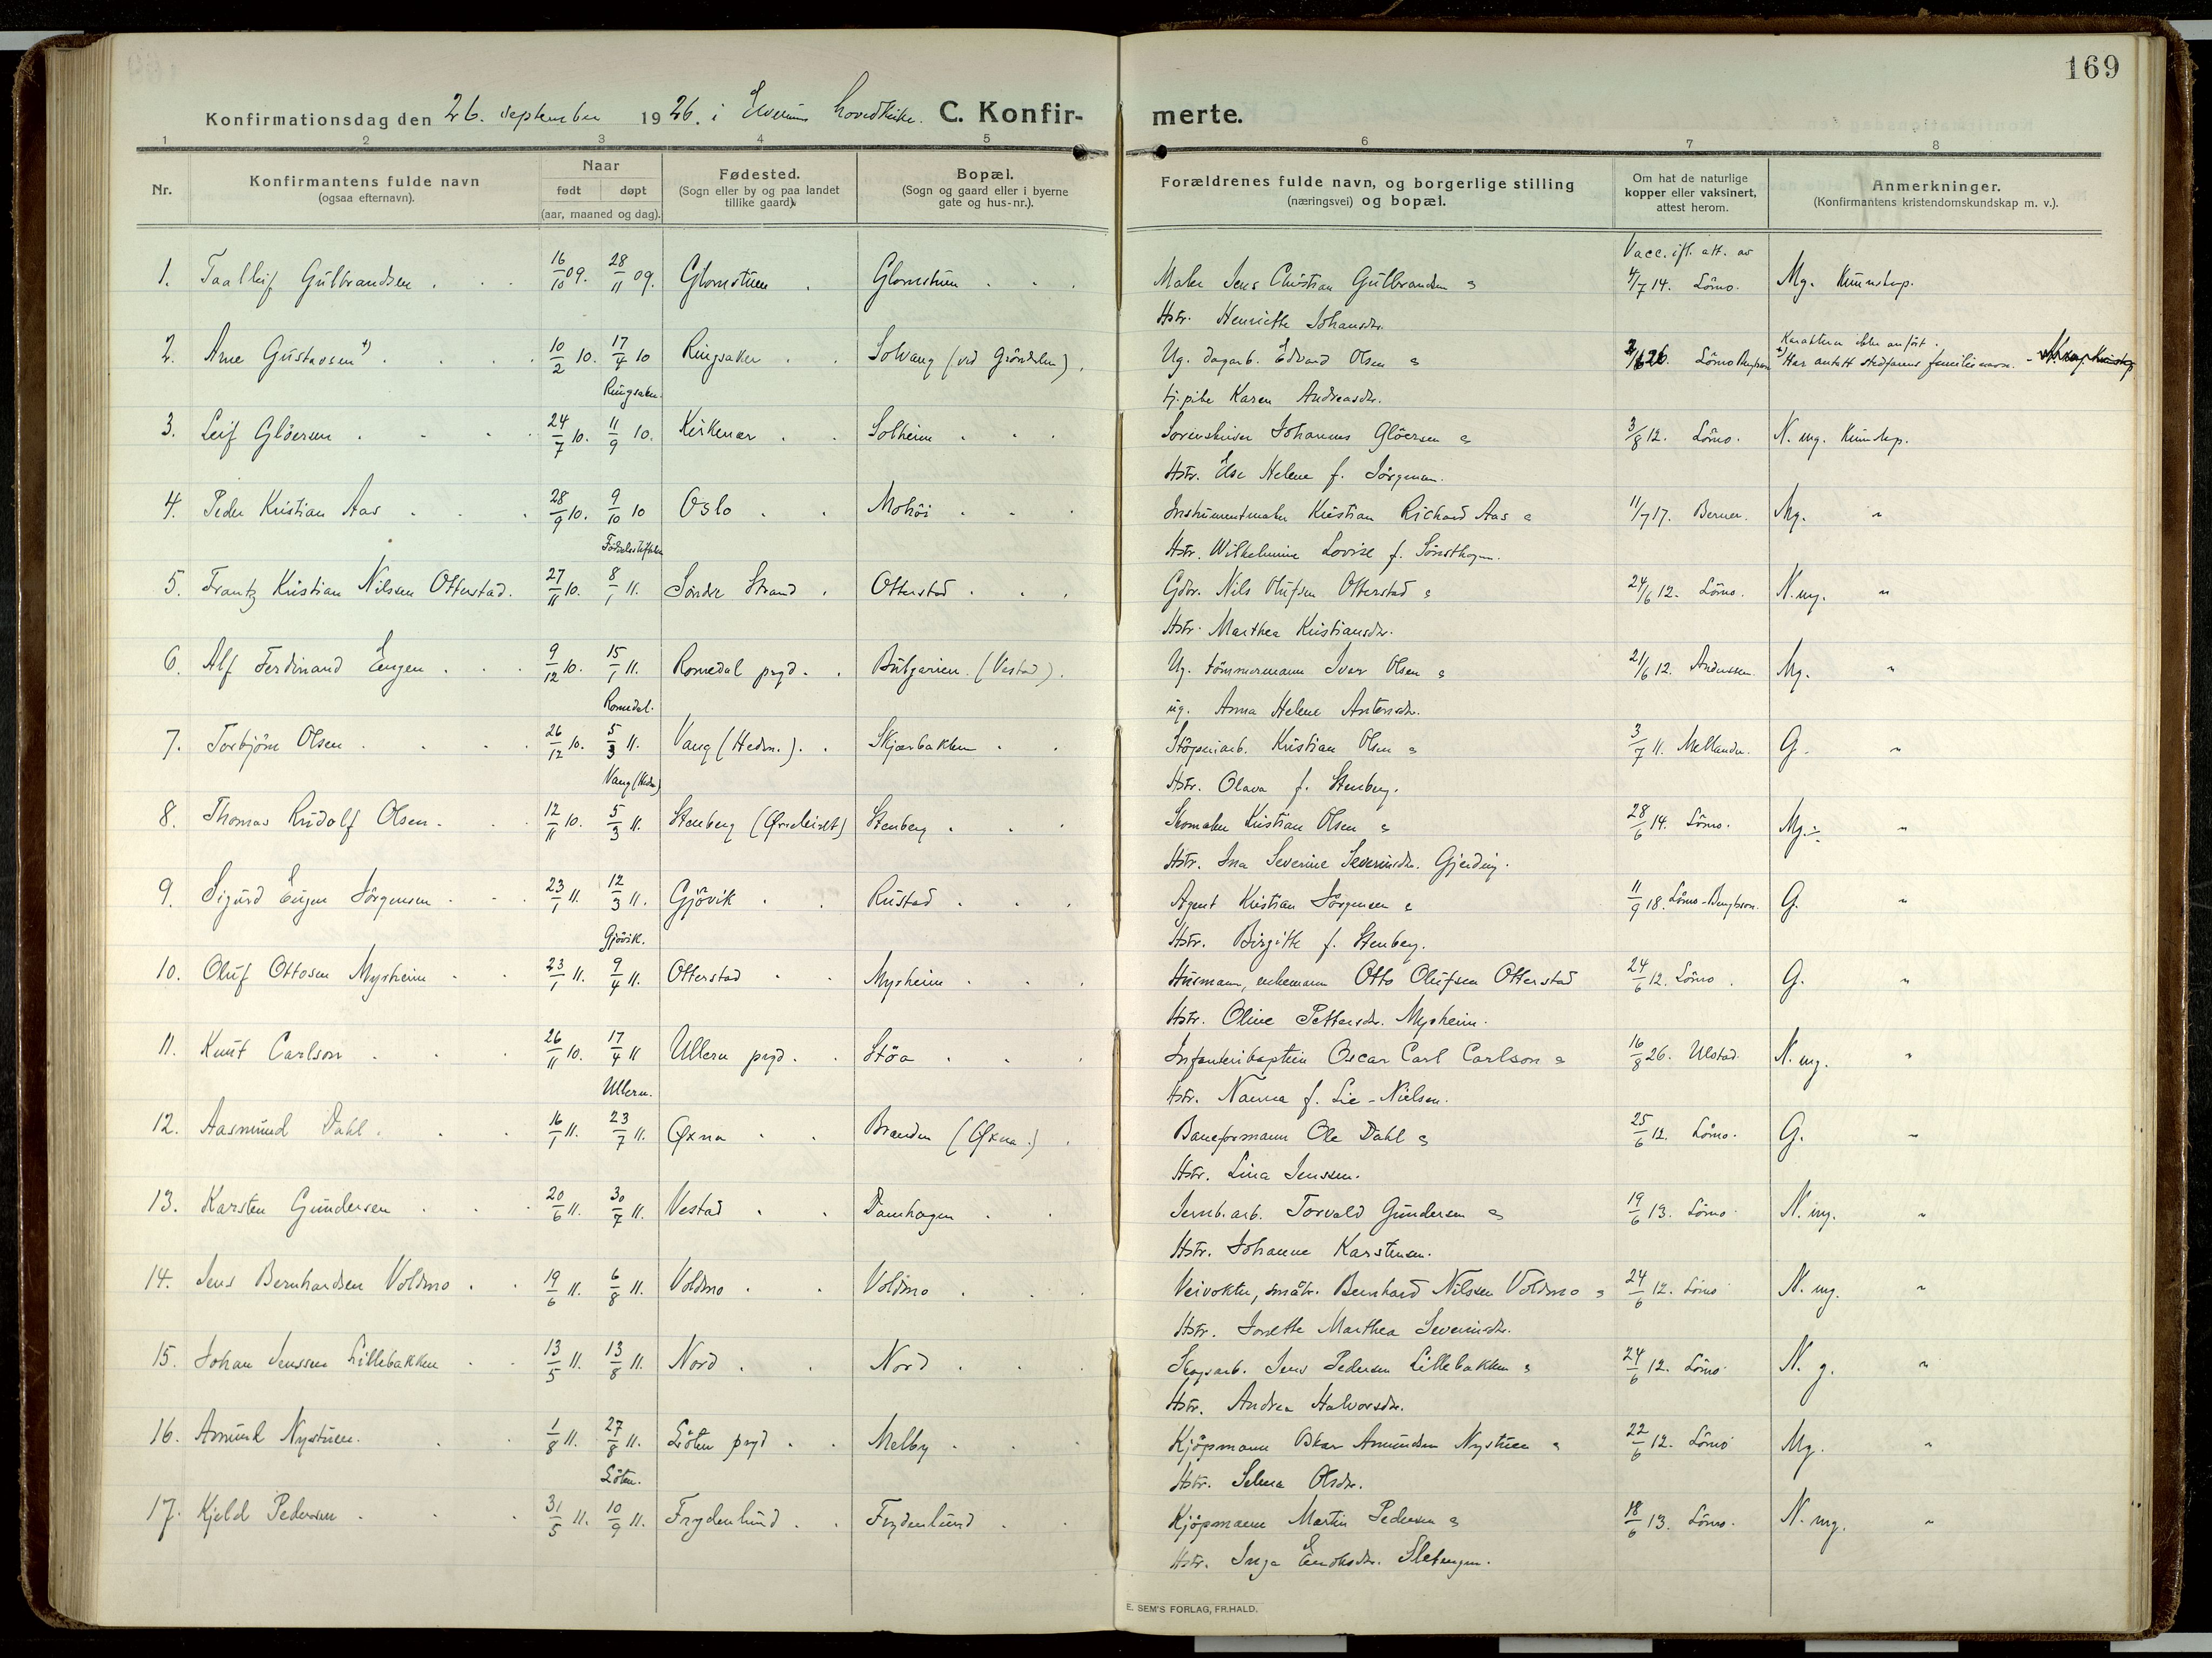 169
Konfirmationsdag den 26. september 1926. i Elverum hovedkirke. C. Konfirmerte.
1 2 3 4 5 6 7 8
Nr. Konfirmantens fulde navn (ogsaa efternavn). Naar født døpt (aar, maaned og dag). Fødested. (Sogn eller by og paa landet tillike gaard). Bopæl. (Sogn og gaard eller i byerne gate og hus-nr.). Forældrenes fulde navn, og borgerlige stilling (næringsvei) og bopæl. Om hat de naturlige kopper eller vaksinert, attest herom. Anmerkninger. (Konfirmantens kristendomskundskap m. v.).
Vacc. ifl. att. av
1. Taalleif Gulbrandsen 16/10 09. 28/11 09. Glomstuen Glomstuen Maler Jens Christian Gulbrandsen & 4/7 14. Lömo. Mg. Kunnskap.
Hstr. Henriette Johansdr.
Karakteren ikke anført.
2. Arne Gustavsen +) 10/2 10. 17/4 10 Ringsaker Solvang (ved Gröndalen). Ug. dagarb. Edvard Olsen & 2/6 26. Lömo +) Har antatt stedfarens familienavn.
Ringsaker. tj. pike Karen Andreasdr.
3. Leif Glöersen 24/7 10. 11/9 10. Kirkenær Solheim Sorenskriver Johannes Glöersen & 3/8 12. Lömo. N. mg. Kunnskp.
Hstr. Else Helene f. Jörgensen.
4. Peder Kristian Aas 28/9 10. 9/10 10 Oslo Mohöi Instrumentmaker Kristian Richard Aas & 11/7 17. Berner. Mg. "
Fødselsstiftelsen Hstr. Wilhelmine Lovise f. Sönsthagen.
5. Frantz Kristian Nilssen Otterstad. 27/11 10. 8/1 11. Söndre Strand Otterstad Gdbr. Nils Olufsen Otterstad & 24/6 12. Lömo. N. mg. "
Hstr. Marthea Kristiansdr.
6. Alf Ferdinand Engen 9/12 10. 15/1 11. Romedal prgd. Bulgarien. (Vestad). Ug. tömmermann Ivar Olsen & 21/6 12. Anderssen. Mg. "
Romedal. ug. Anna Helene Antonsdr.
7. Torbjörn Olsen 26/12 10. 5/3 11. Vang (Hedm.). Skjærbakken Stöperiarb. Kristian Olsen & 3/7 11. Mellander. G. "
Vang (Hedm) Hstr. Olava f. Stenberg.
8. Thomas Rudolf Olsen. 12/11 10. 5/3 11. Stenberg (Grindalen) Stenberg Skomaker Kristian Olsen & 28/6 14. Lömo. Mg. ÷ "
Hstr. Ina Severine Severinsdr. Gjerding.
9. Sigurd Eugen Jörgensen 23/1 11. 12/3 11. Gjövik Rustad Agent Kristian Jörgensen & 11/9 18. Lömo-Bengtson. G. "
Gjövik. Hstr. Birgitte f. Stenberg.
10. Oluf Ottosen Myrheim 23/1 11. 9/4 11. Otterstad Myrheim Husmann, enkemann Otto Olufsen Otterstad 24/6 12. Lömo G. "
Hstr. Oline Pettersdr. Myrheim.
11. Knut Carlson 26/11 10. 17/4 11 Ullern prgd. Støa Infanterikaptein Oscar Carl Carlson & 16/8 26. Ulstad. N. mg. "
Ullern. Hstr. Nanna f. Lie-Nielsen.
12. Aasmund Dahl 16/1 11. 23/7 11. Øxna Branden (Øxna) Baneformann Ole Dahl & 25/6 12. Lömo. G. "
Hstr. Lina Jenssen.
13. Karsten Gundersen 20/6 11. 30/7 11. Vestad Damhagen Jernb. arb. Torvald Gundersen & 19/6 13. Lömo N. mg. "
Hstr. Johanne Karstensen.
14. Jens Bernhardsen Voldmo 19/6 11. 6/8 11. Voldmo Voldmo Veivokter, småbr. Bernhard Nilssen Voldmo & 24/6 12. Lömo N. mg. "
Hstr. Josette Marthea Severinsdr.
15. Johan Jenssen Lillebakken 13/5 11. 13/8 11. Nord Nord Skogsarb. Jens Pedersen Lillebakken & 24/6 12. Lömo N. g. "
Hstr. Andrea Halvorsdr.
16. Amund Nystuen. 1/8 11. 27/8 11. Löten prgd Melby Kjöpmann Oskar Amundsen Nystuen & 22/6 12. Lömo Mg. "
Löten. Hstr. Selma Olsdr.
17. Kjeld Pedersen 31/5 11. 10/9 11. Frydenlund Frydenlund Kjöpmann Martin Pedersen & 18/6 13. Lömo. N. mg. "
Hstr. Inga Enoksdr. Sletengen.
E. SEM'S FORLAG, FR.HALD.